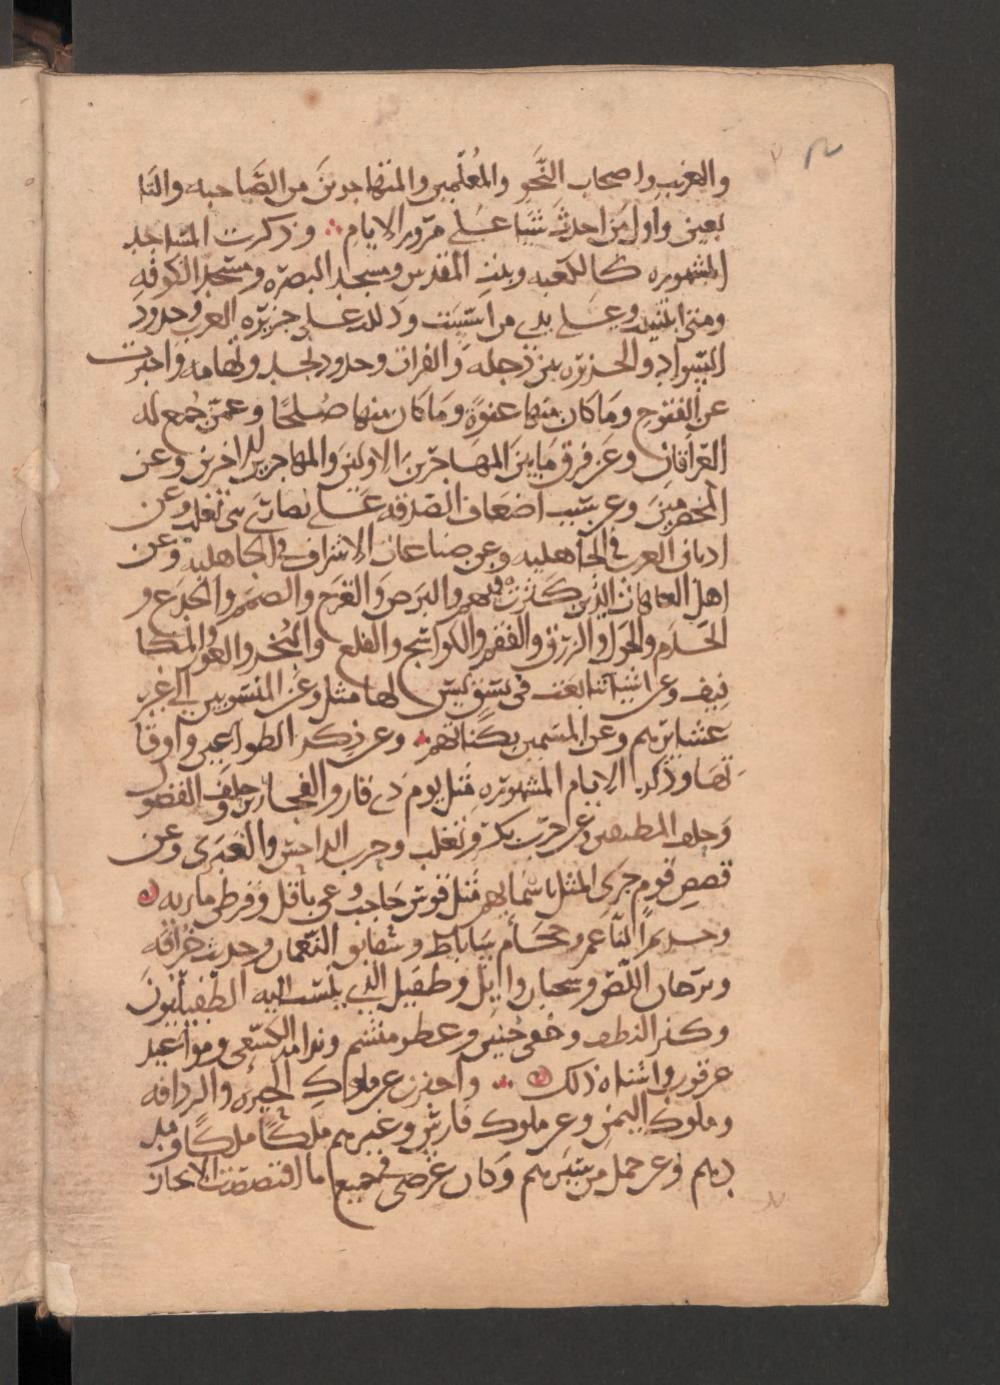 والغريب واصحاب النَّحو والمُعلّمين والمتهاجرينَ من الصَّاحبه والتا
بعين واول مَن احدثَ شيّا علي مرّور الايام ؞ وذكرت المشاجد
المشهوره كالكعبه وبيت المقدس ومسجد البصره ومسجد الكوفه
ومتي ابتنيت وعلي يدي من اسّست ودللت علي جزيره العرب وحدود
السّواد والجزيره بين دجله والفرات وحدود نجد وتهامه واخبرت
عن الفتوح وما كان منها عنوةً وما كان منها صُلحًا وعمن جُمع له
العراقان وعن فرق ما بين المهاجرين الاولين والمهاجرين الاخرين وعن
المخضرمينَ وعن سبب اضعاف الصّدقه علي نصاري بني تغلب وعن
اديان العرب في الجاهليه وعن صناعات الاشراف في الجاهليه وعن
اهل العاهات الذين كثرت فيهم والبرص والقرح والصمم والجدع و
الجذام والحول والزرق والفقم والكواسج والقلع والبُخر والعور والمكا
فيف وعن اشيا تتابعت في نسق ليس لها مثل وعن المنسوبين الي غير
عشايرهم وعن المسمين بكناهم ؞ وعن ذكر الطواعين واوقا
تها وذكر الايام المشهوره مثل يوم ذي قار والفجار وحلف الفضول
وحلف المطيبين وعن حرب بكر وتغلب وحرب الداحس والغبرى وعن
قصص قوم جري المثل باسمايهم مثل قوس حاجب وعي باقل وقرطي ماريه ه
وخريم الناعم وحجّام ساباط وشقايق النّعمان وحديث خُرافه
وبرجان اللّص وسحبان وايل وطفيل الذي ينسب اليه الطفيليون
وكنز النطف وخفي حُنين وعطر منشم وندامه الكسعي ومواعيد
عرقوب واشباه ذلك ه ؞ واخبرت عن ملوكِ الحيره والردافه
وملوك اليمن وعن ملوك فارس وغيرهم ملكًا ملكًا ومدد
هم وعن جمل من سيرهم وكان غرضي في جميع ما اقتصصت الايجاز